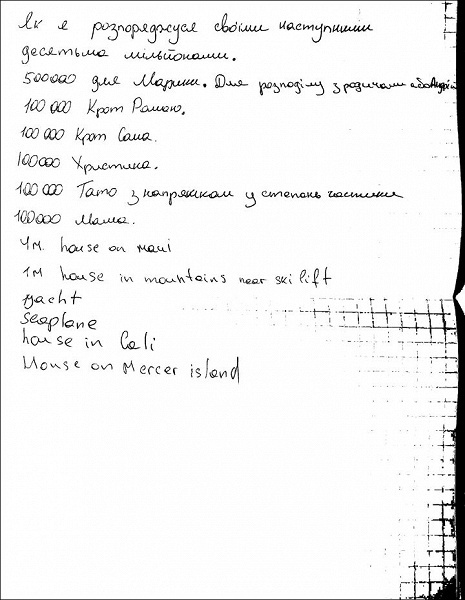 Як я розпоряджуся своїми наступними
десятьма мільйонами.
500000 для Марини. Для розподілу з родичами або
100 000 Крот Рамою.
100 000 Крот Саша.
100000 Христинка.
100 000 Тато з напряжком у степень частини
100000 Мама.
4м. house on maui
1м house in mountains near ski lift
yacht
seaplane
house in Cali
House on Mercer island